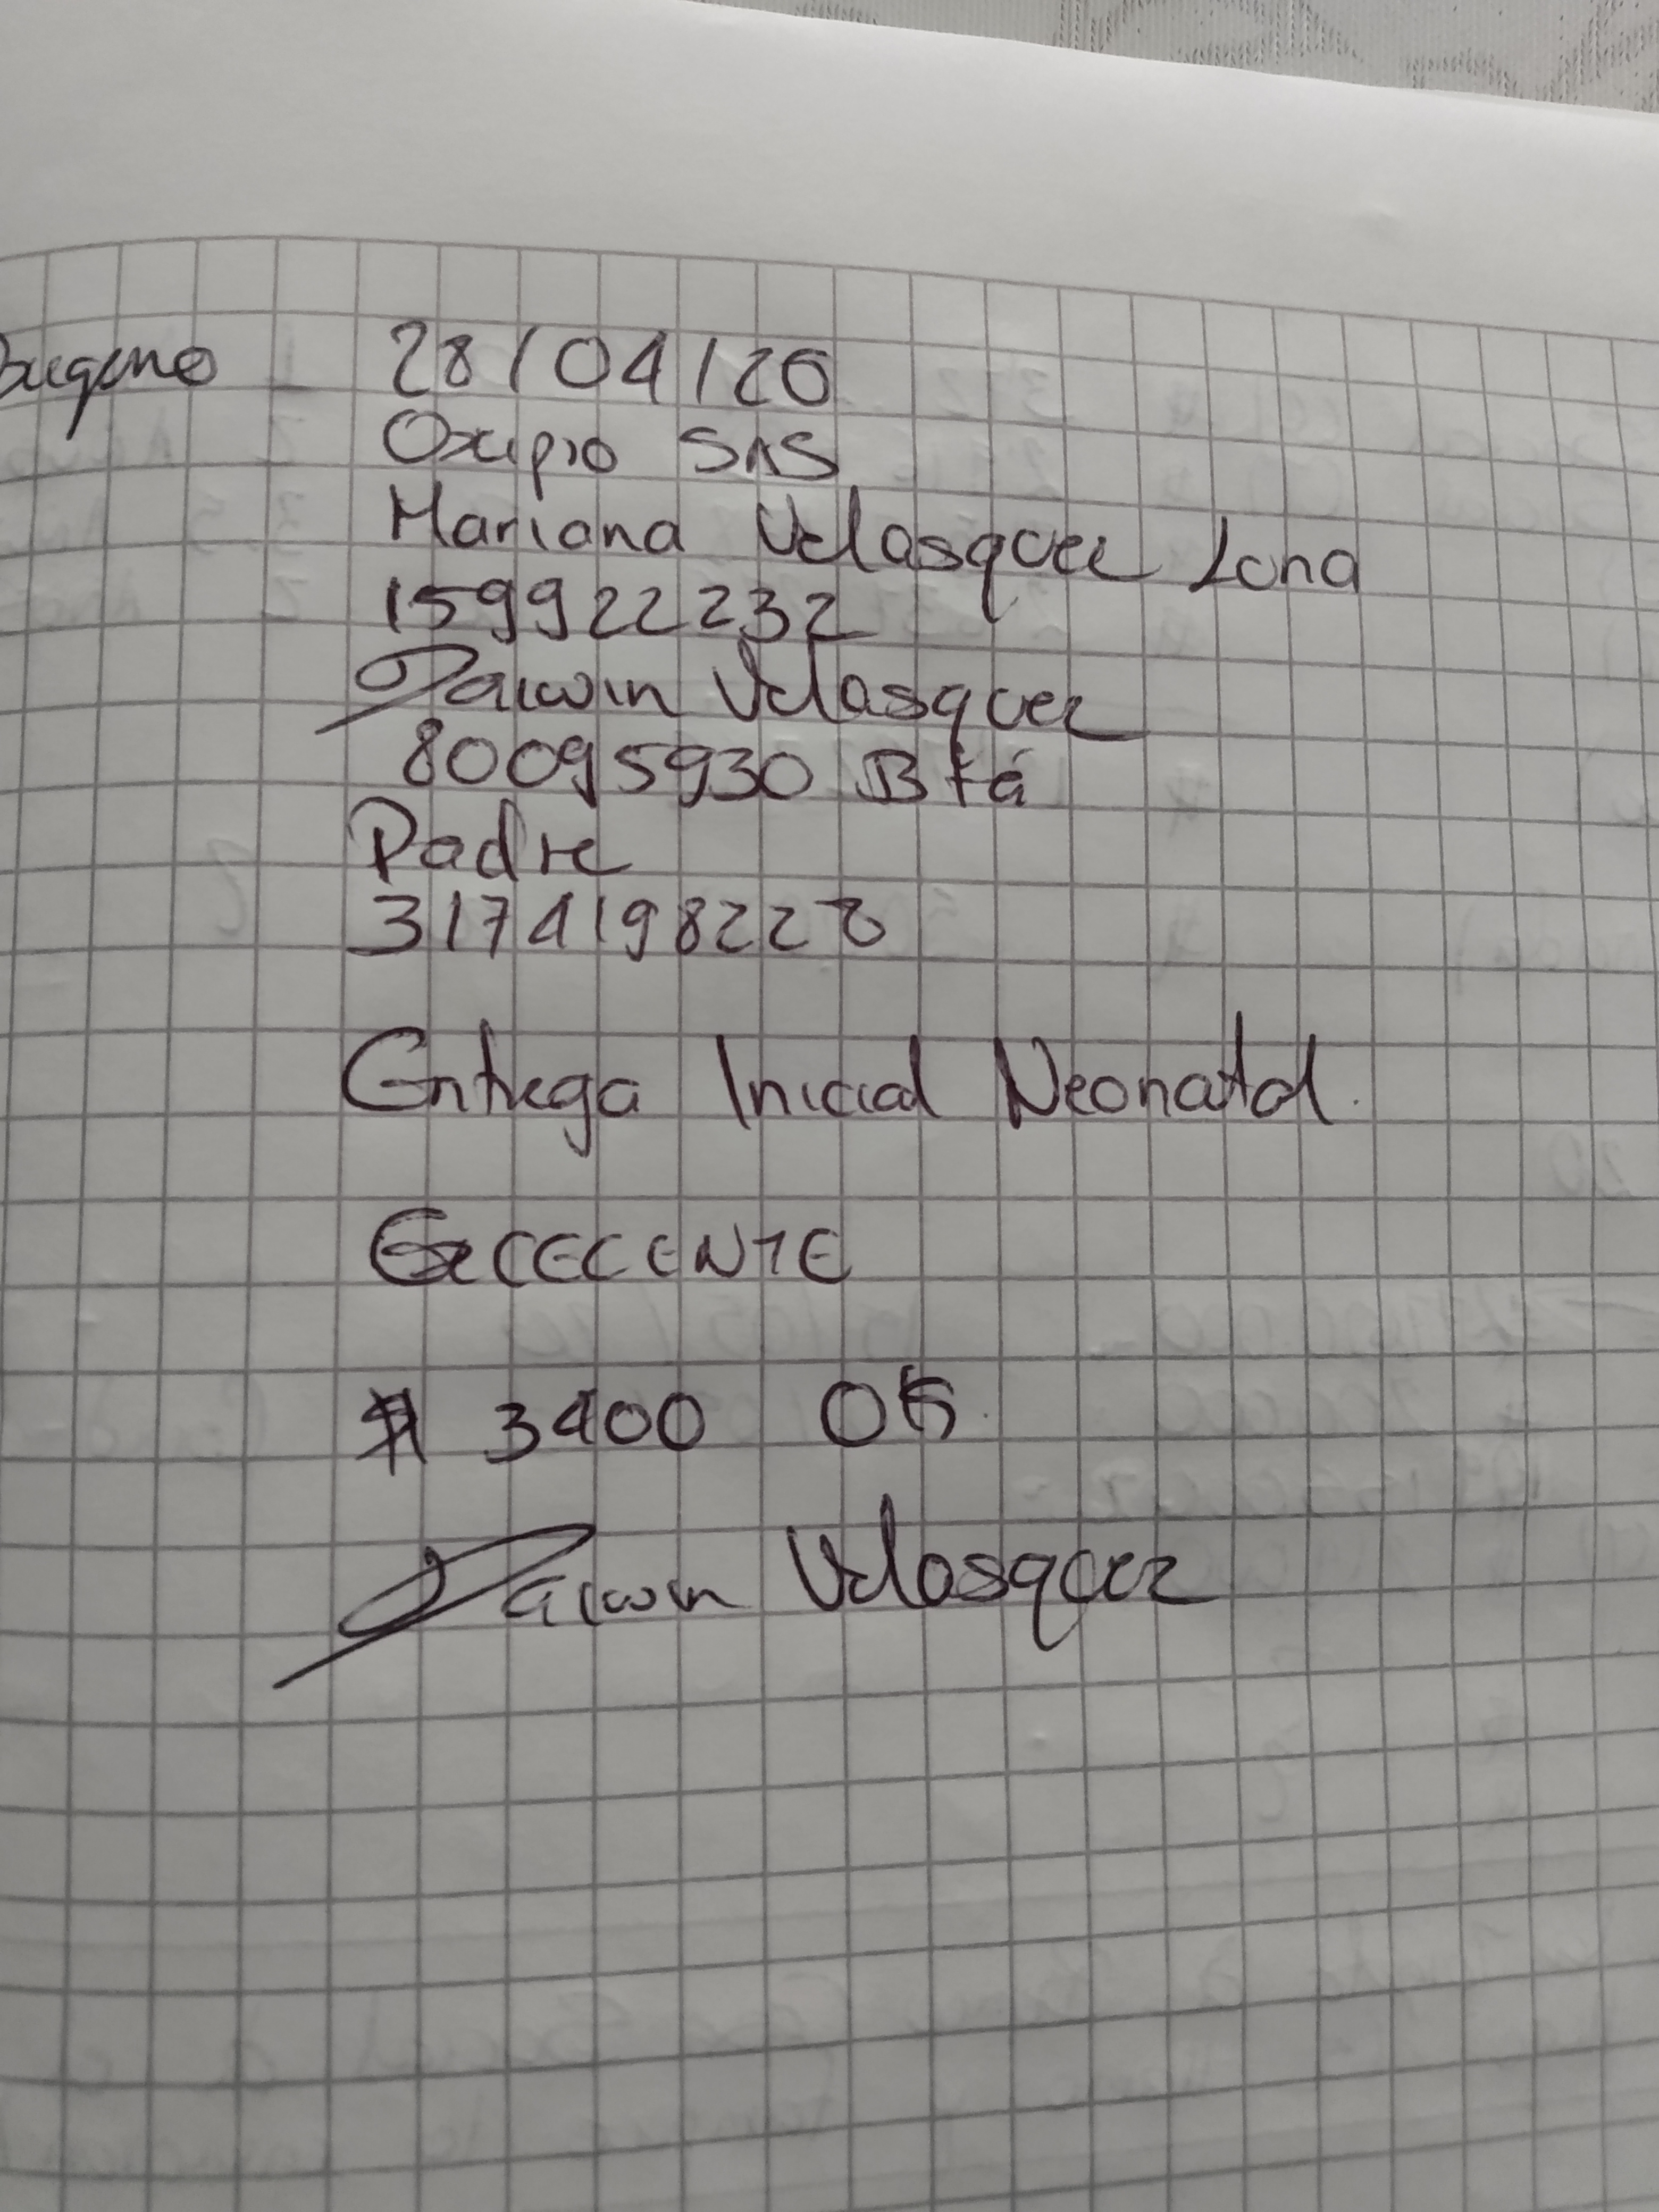 Oxigeno 28/04/26
Oxipro SAS
Mariana Velasquez Luna
159922232
Darwin Velasquez
80095930 Btá
Padre
3174198228
Entrega Inicial Neonatal.
EXCECENTE
$ 3400 OK.
Darwin Velasquez